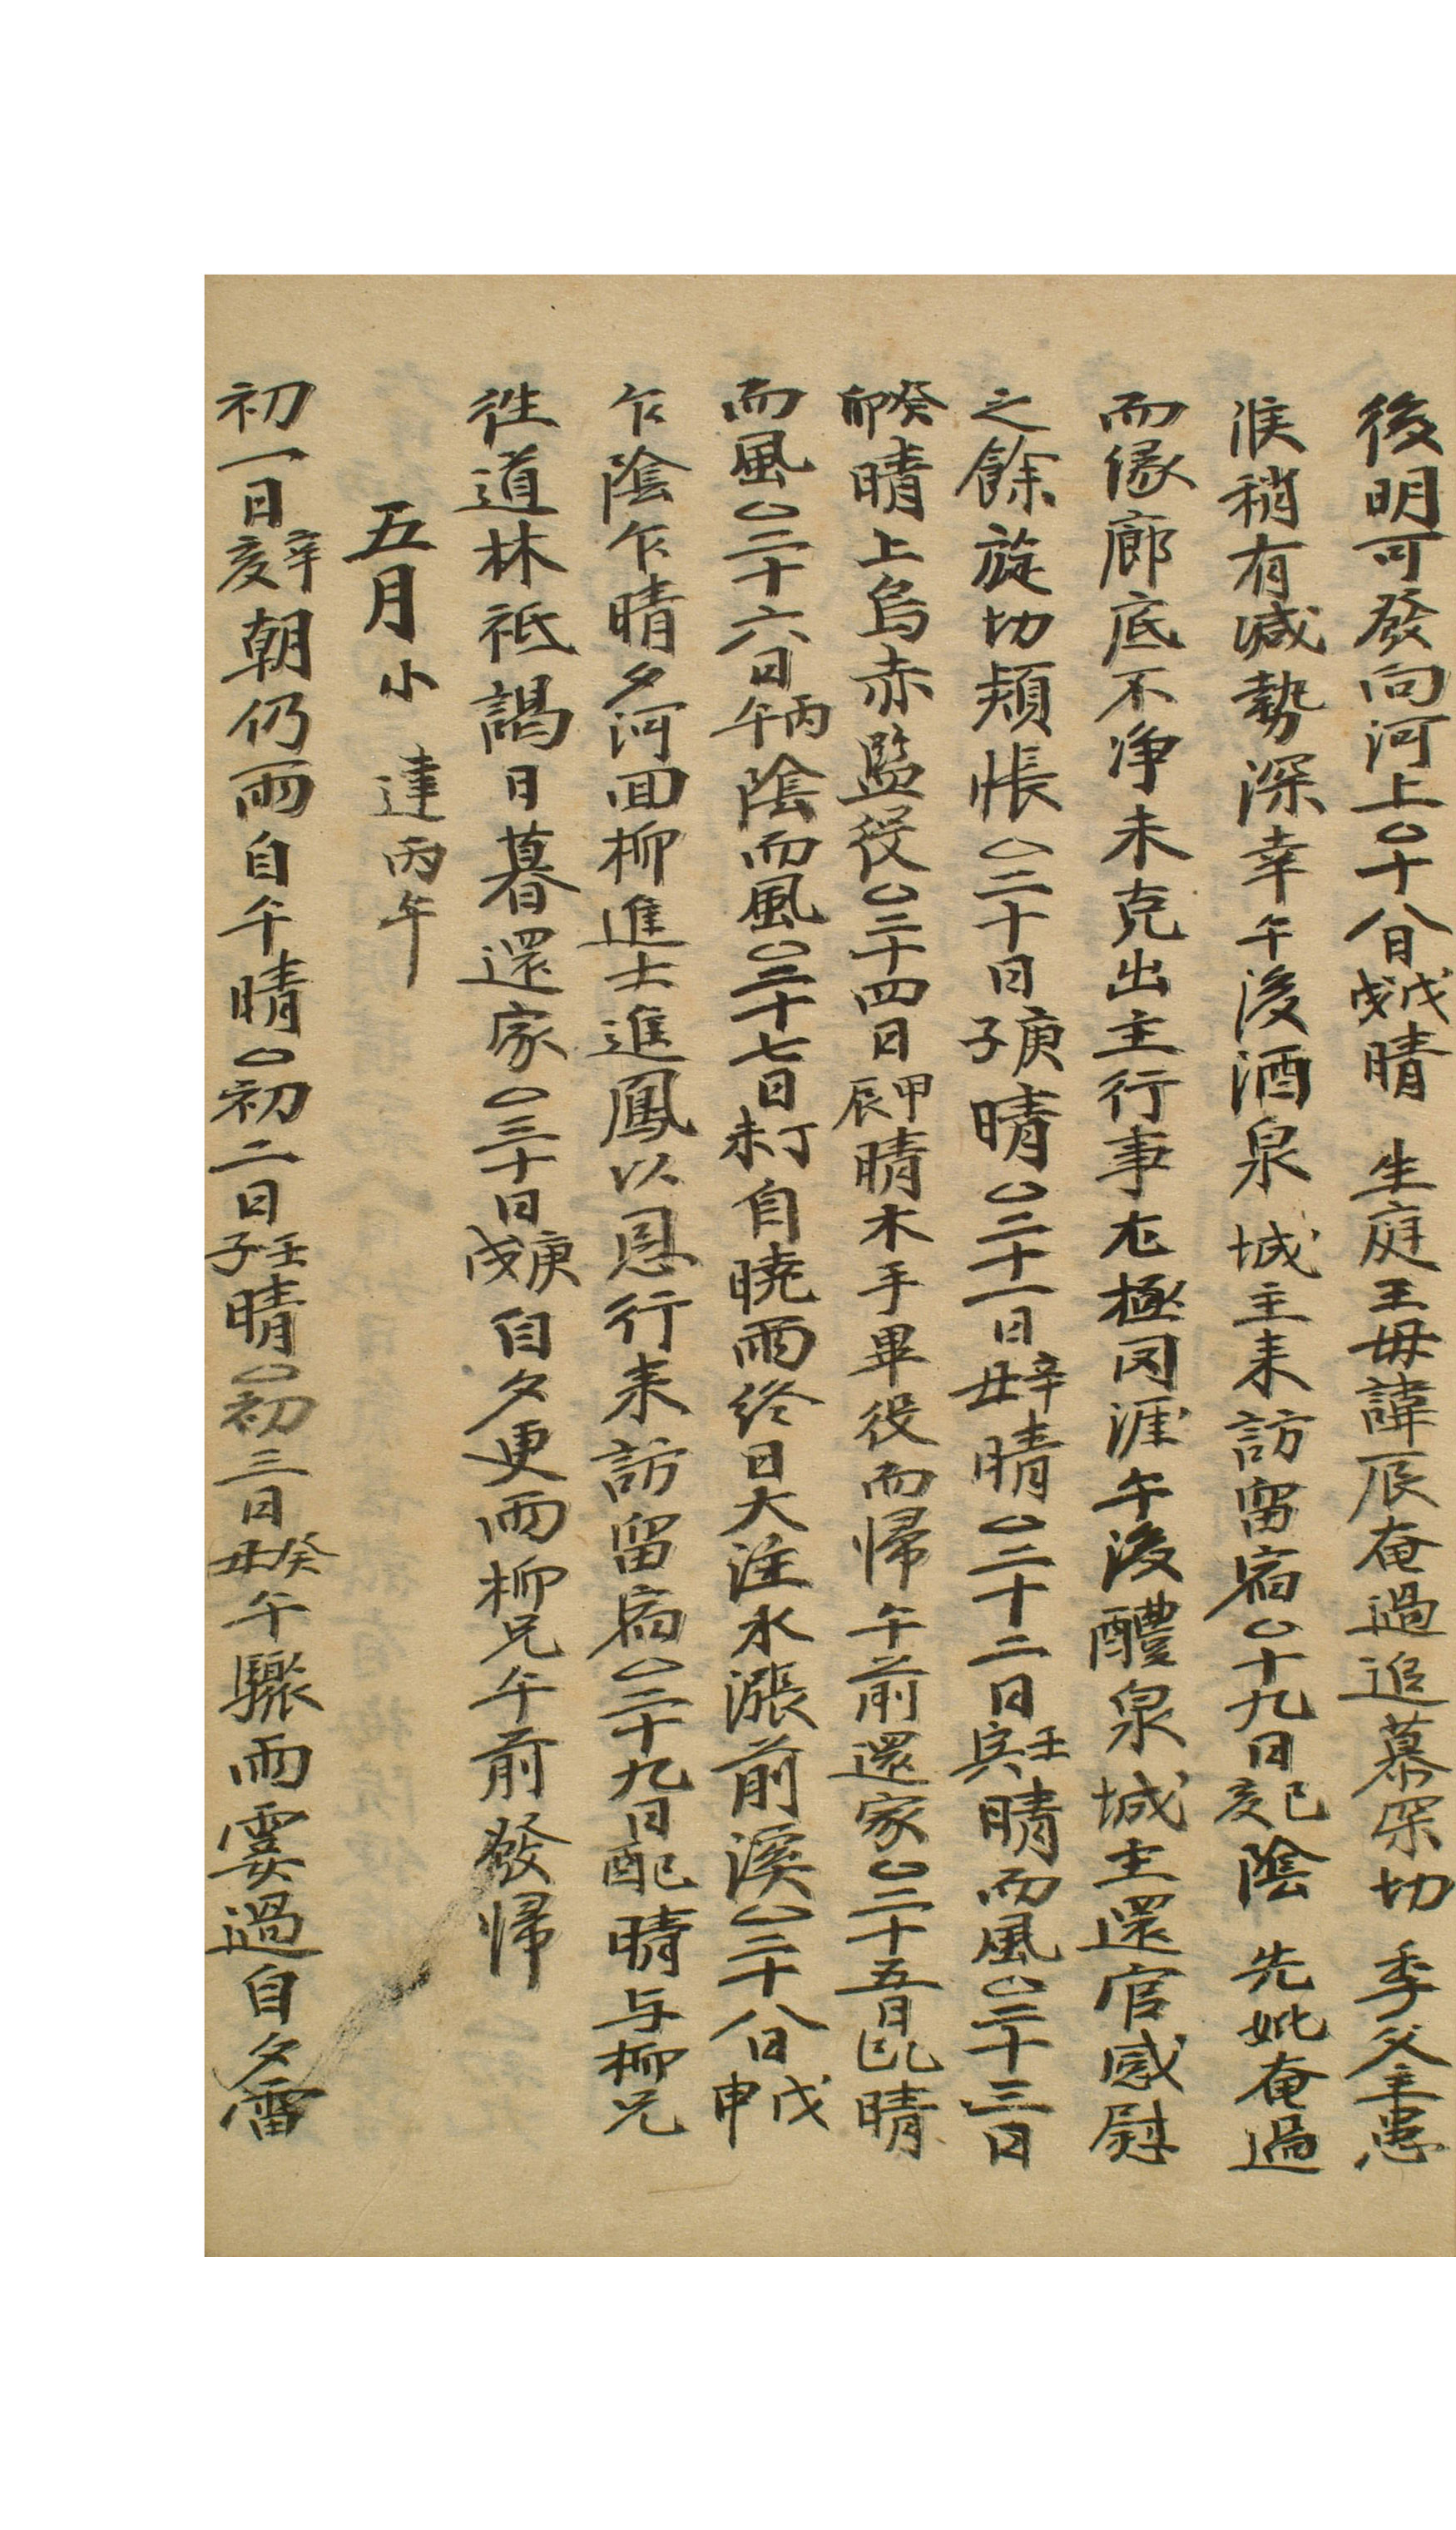 後明可發向河上○十八日戊戌晴 生庭王母諱辰奄過追慕深切 季父主患
候稍有减勢深幸午後酒泉城主来訪留宿○十九日己亥陰 先妣奄過
而緣廊底不净未克出主行事尤極罔涯午後醴泉城主還官感慰
之餘旋切頬悵○二十日庚子晴○二十一日辛丑晴○二十二日壬寅晴而風○二十三日
癸卯晴上烏赤監役○二十四日甲辰晴木手畢役而帰午前還家○二十五日乙巳晴
而風○二十六日丙午陰而風○二十七日丁未自曉雨終日大注水漲前溪○二十八日戊申
乍陰乍晴夕河回柳進士進鳳以恩行来訪留宿○二十九日己酉晴与柳兄
徃道林祗謁日暮還家○三十日庚戌自夕更雨柳兄午前發帰
五月小 建丙午
初一日辛亥朝仍雨自午晴○初二日壬子晴○初三日癸丑午驟雨霎過自夕雷